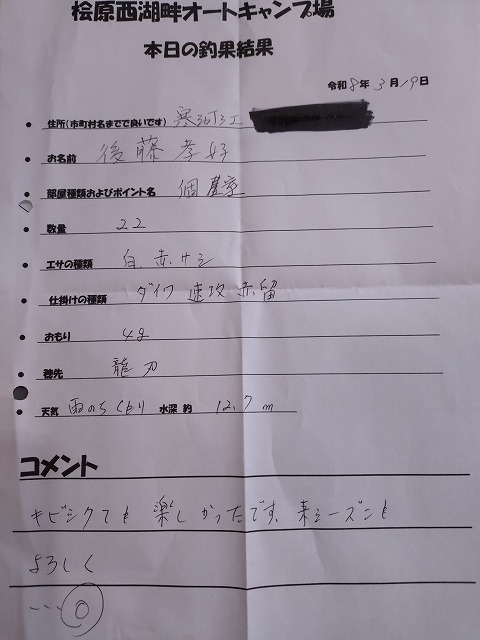 桧原西湖畔オートキャンプ場
本日の釣果結果
令和8年3月19日
住所(市町村名までで良いです) 寒河江
お名前 後藤孝好
部屋種類およびポイント名 個室
数量 22
エサの種類 白、赤サシ
仕掛けの種類 ダイワ 速攻 赤留
おもり 4g
穂先 龍刃
天気 雨のちくもり 水深 約 12.7m
コメント
キビシクても楽しかったです。来シーズンも
よろしく
…○